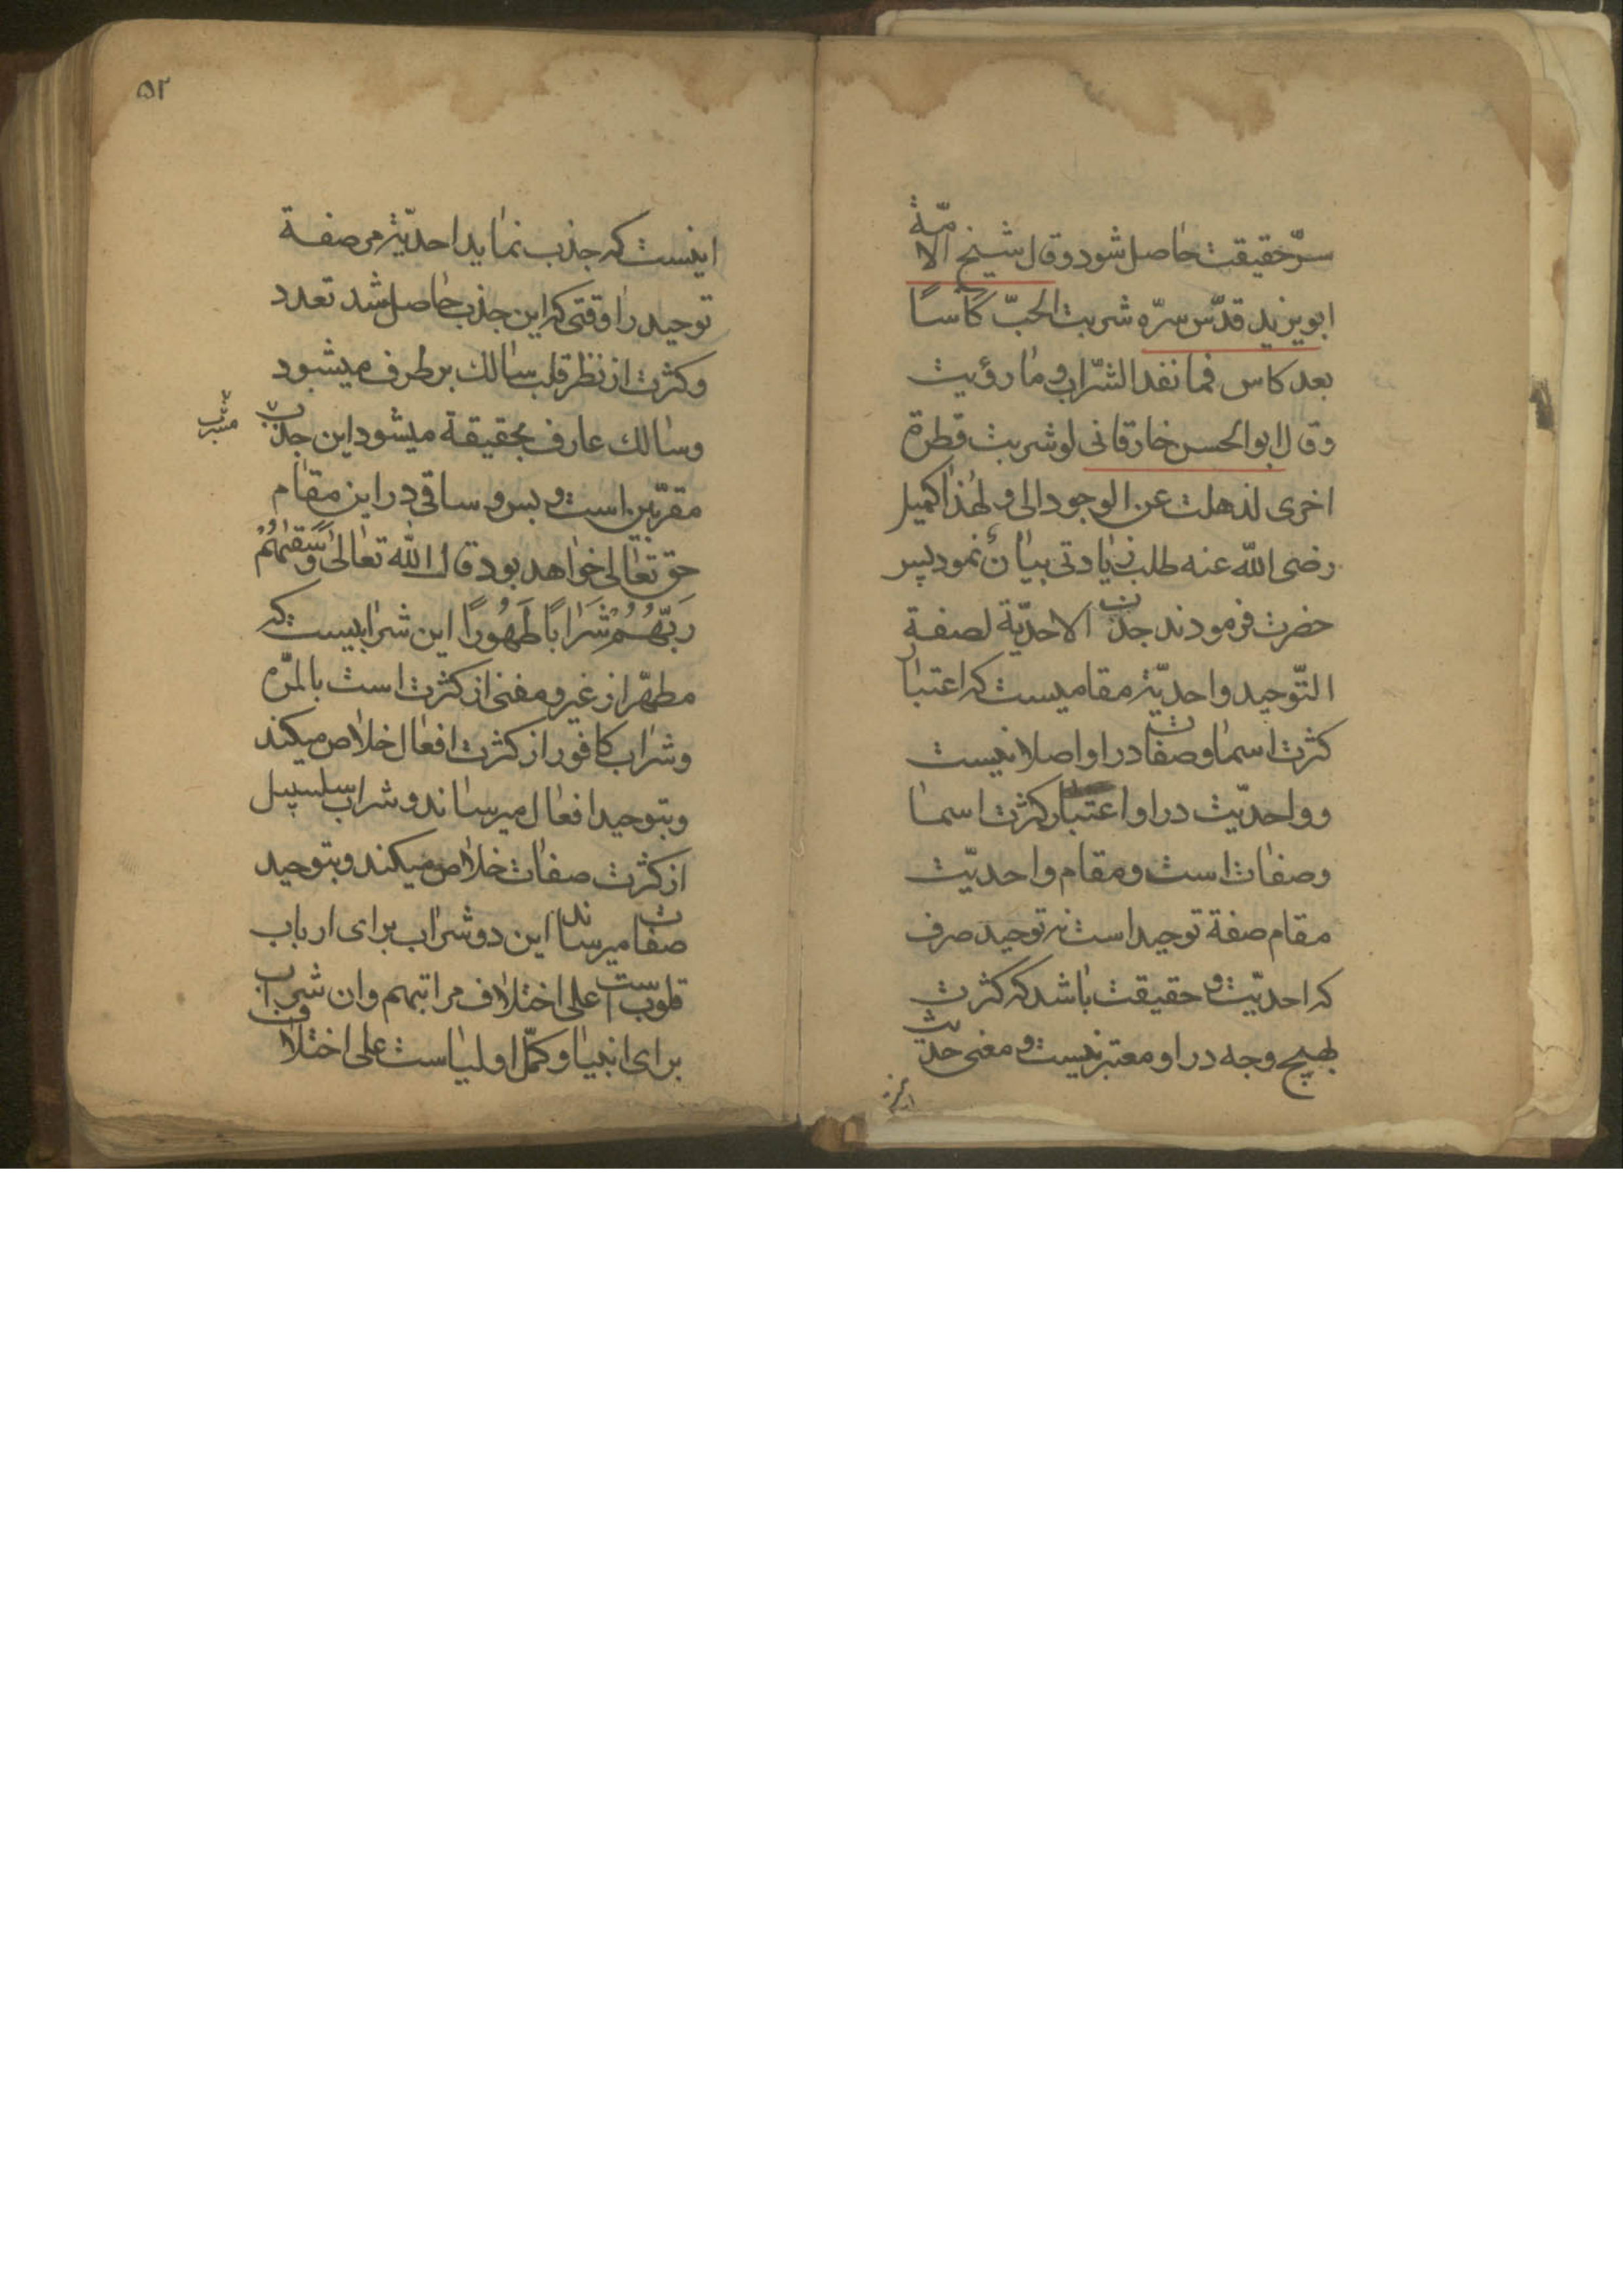 سرّ حقیقت حاصل شود وقال شیخ الامّة
ابویزید قدّس سرّه شربت الحبّ کاسًا
بعد کاس فما نفد الشّراب و ما رؤیت
وقال ابوالحسن خارقانی لو شربت قطرة
اخری لذهلت عن الوجود الی و لهذا کمیل
رضی الله عنه طلب زیادتی بیان نمود پس
حضرت فرمودند جذب الاحدیّة لصفة
التّوحید واحدیّة مقامیست که اعتبار
کثرت اسما وصفات در او اصلا نیست
و واحدیّت در او اعتبار کثرت اسما
وصفات است و مقام واحدیّت
مقام صفة توحید است نه توحید صرف
که احدیّت و حقیقت باشد که کثرت
بهیچ وجه در او معتبر نیست و معنی حدیث
اینست که
۵۲
اینست که جذب نماید احدیّة مر صفة
توحید را وقتی که این جذب حاصل شد تعدد
و کثرت از نظر قلب سالک بر طرف میشود
وسالک عارف بحقیقة میشود این جذب
مشرب
مقرّبین است و بس و ساقی در این مقام
حق تعالی خواهد بود قال الله تعالی وَسَقیٰهُمْ
رَبُّهُمْ شَرَابًا طَهُورًا این شرابیست که
مطهّر از غیر و مفنی از کثرت است بالمرّه
وشراب کافور از کثرت افعال خلاص میکند
وبتوحید افعال میرساند و شراب سلسبیل
از کثرت صفات خلاص میکند و بتوحید
صفات میرساند این دو شراب برای ارباب
قلوب است علی اختلاف مراتبهم وان شراب
برای انبیا و کمّل اولیاست علی اختلاف